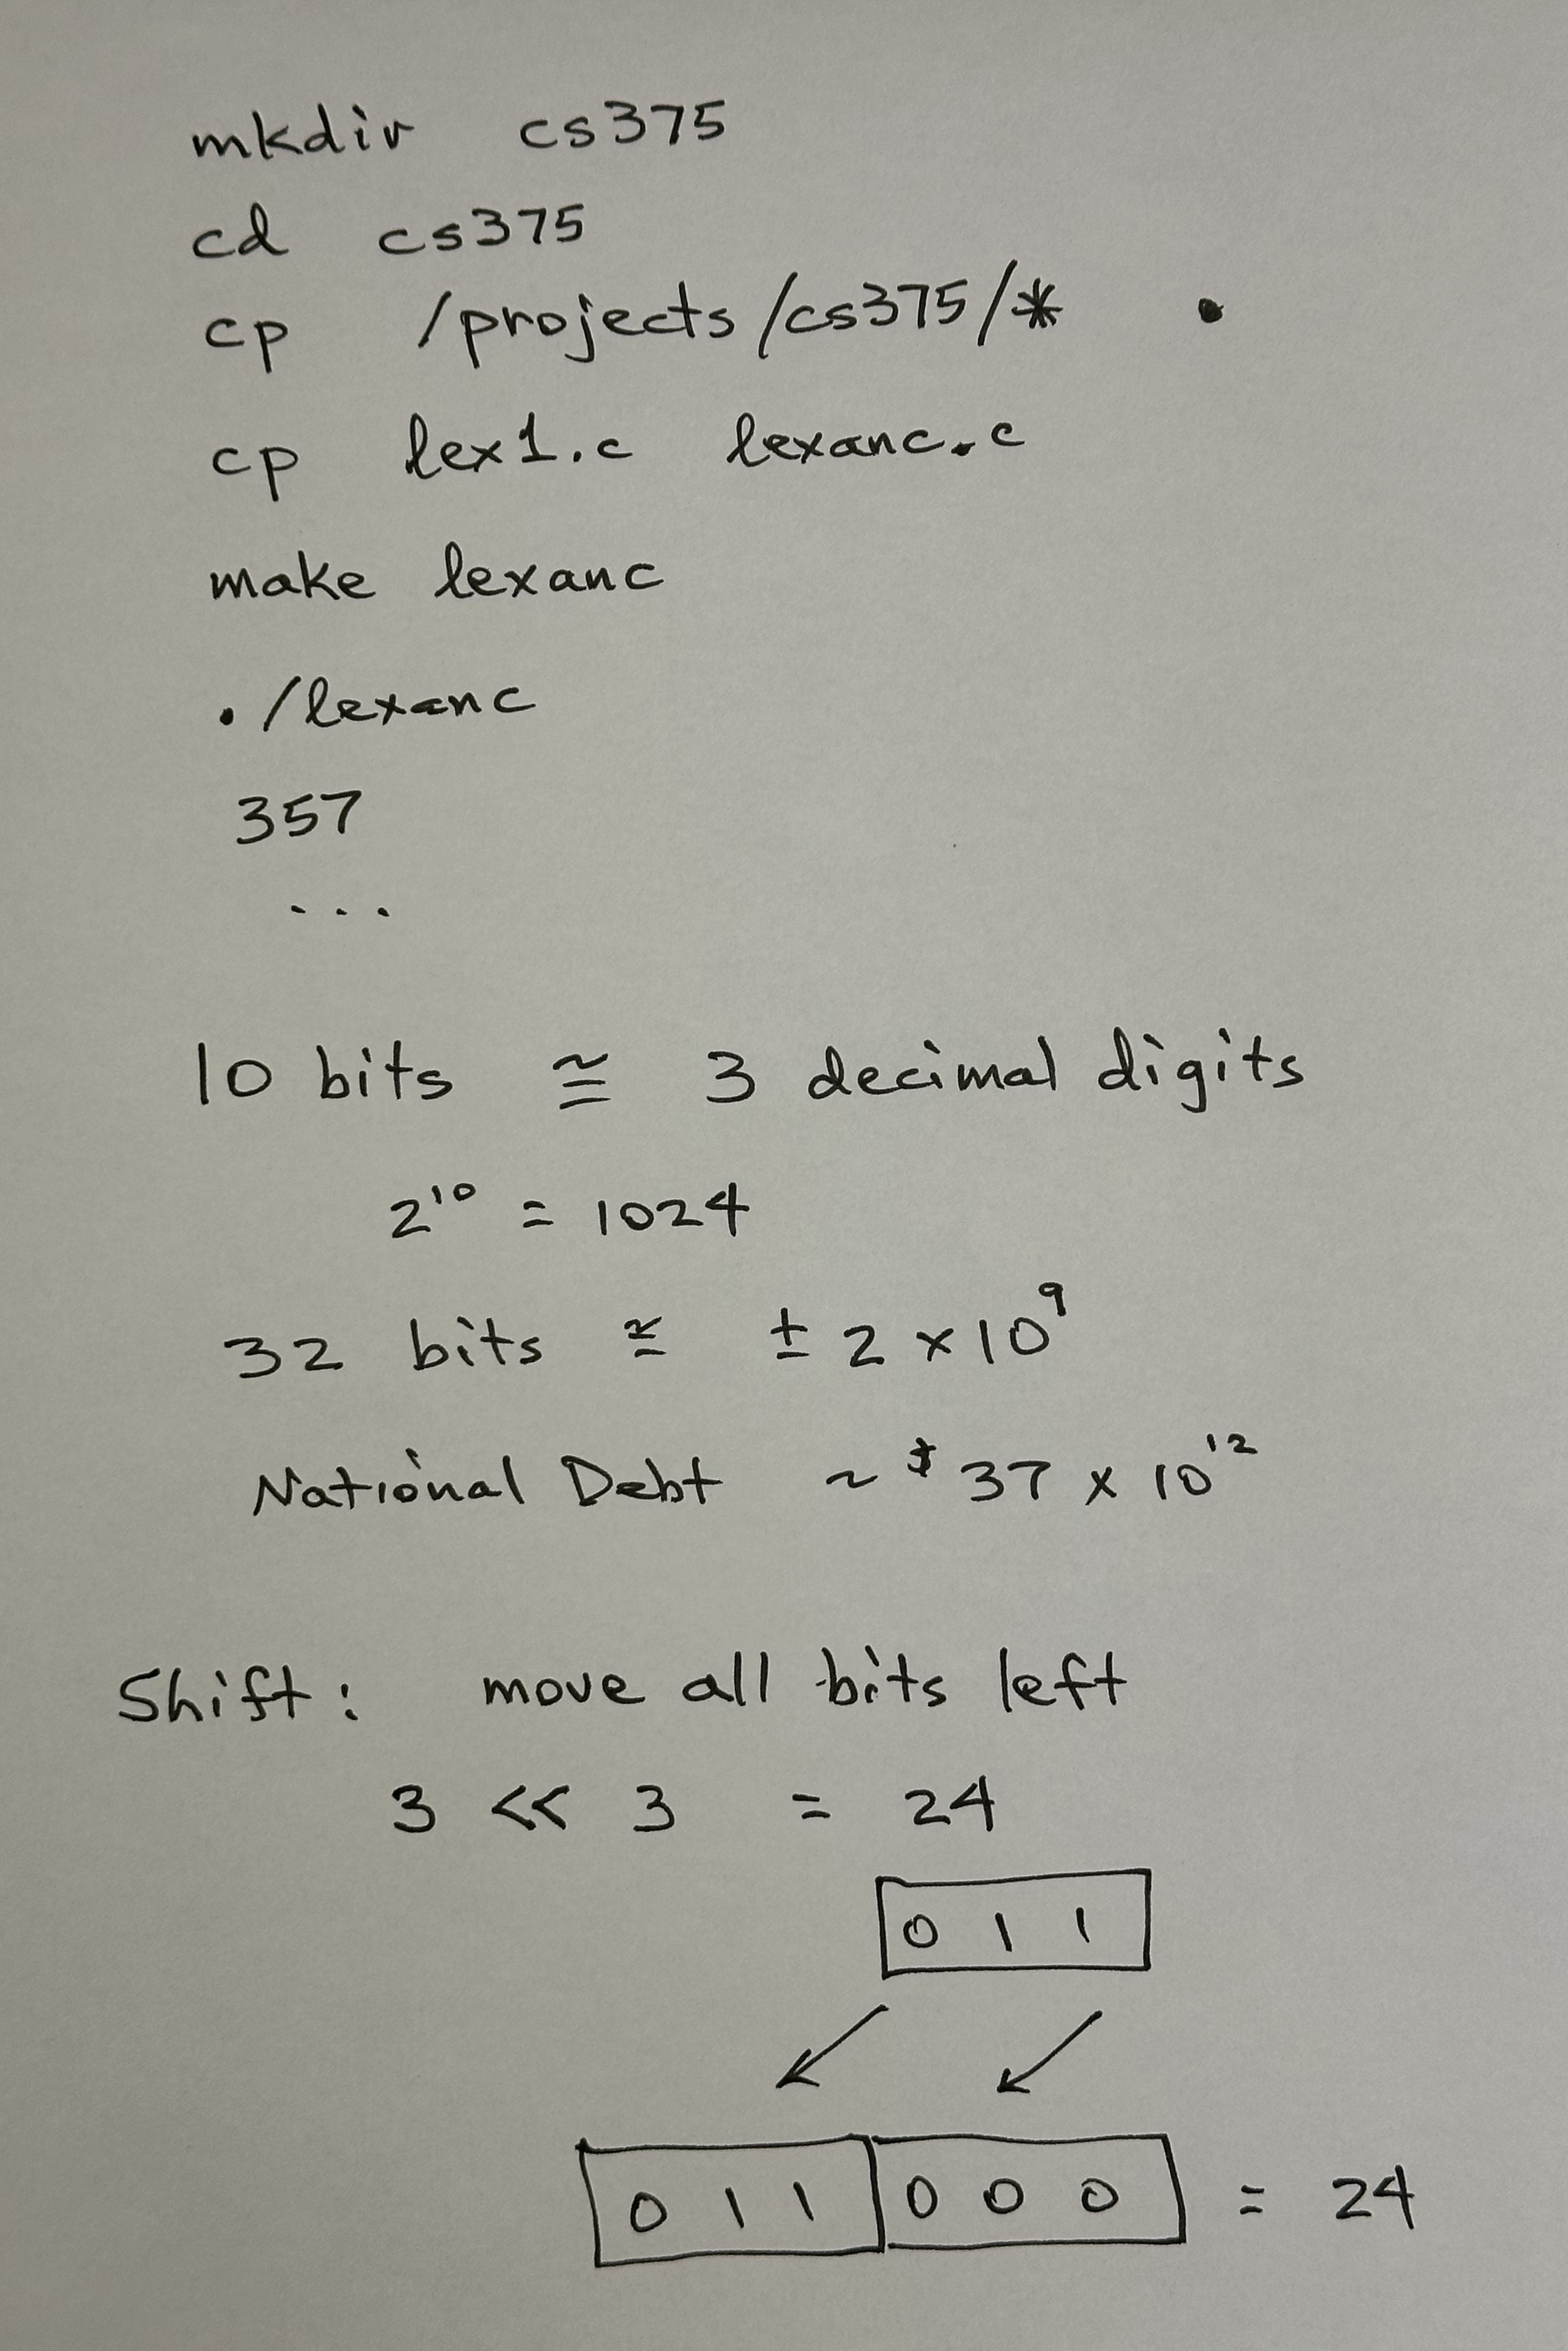 mkdir cs375
cd cs375
cp /projects/cs375/* .
cp lex1.c lexanc.c
make lexanc
./lexanc
357
...
10 bits ≅ 3 decimal digits
2¹⁰ = 1024
32 bits ≅ ± 2 × 10⁹
National Debt ~ $37 × 10¹²
Shift: move all bits left
3 << 3 = 24
0 1 1
0 1 1 0 0 0 = 24